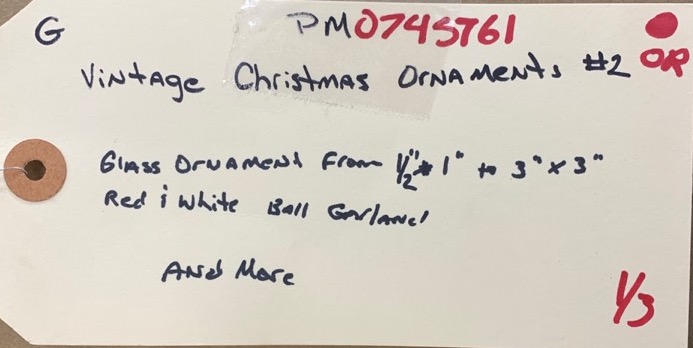 G PM0745761
Vintage Christmas Ornaments #2 OR
Glass Ornament From 1/2" x 1" to 3" x 3"
Red & White Ball Garland
And More
1/3